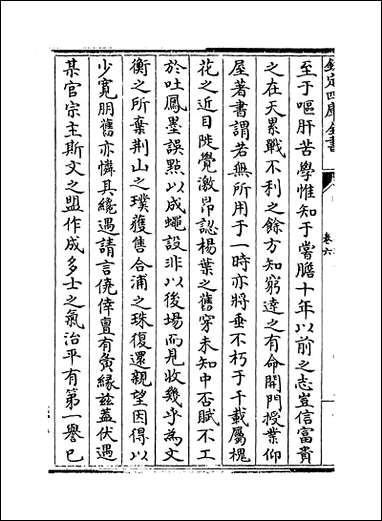 欽定四庫全書
卷六
至于嘔肝苦學惟知于嘗膽十年以前之志豈信富貴
之在天累戰不利之餘方知窮達之有命閉門授業仰
屋著書謂若無所用于一時亦將垂不朽于千載屬槐
花之近目陡覺激昂認楊葉之舊穿未知中否賦不工
於吐鳳墨誤點以成蠅設非以後場而見收幾乎為文
衡之所棄荆山之璞獲售合浦之珠復還親望因得以
少寛朋舊亦憐其纔遇請言僥倖亶有夤縁兹蓋伏遇
某官宗主斯文之盟作成多士之氣治平有第一譽已